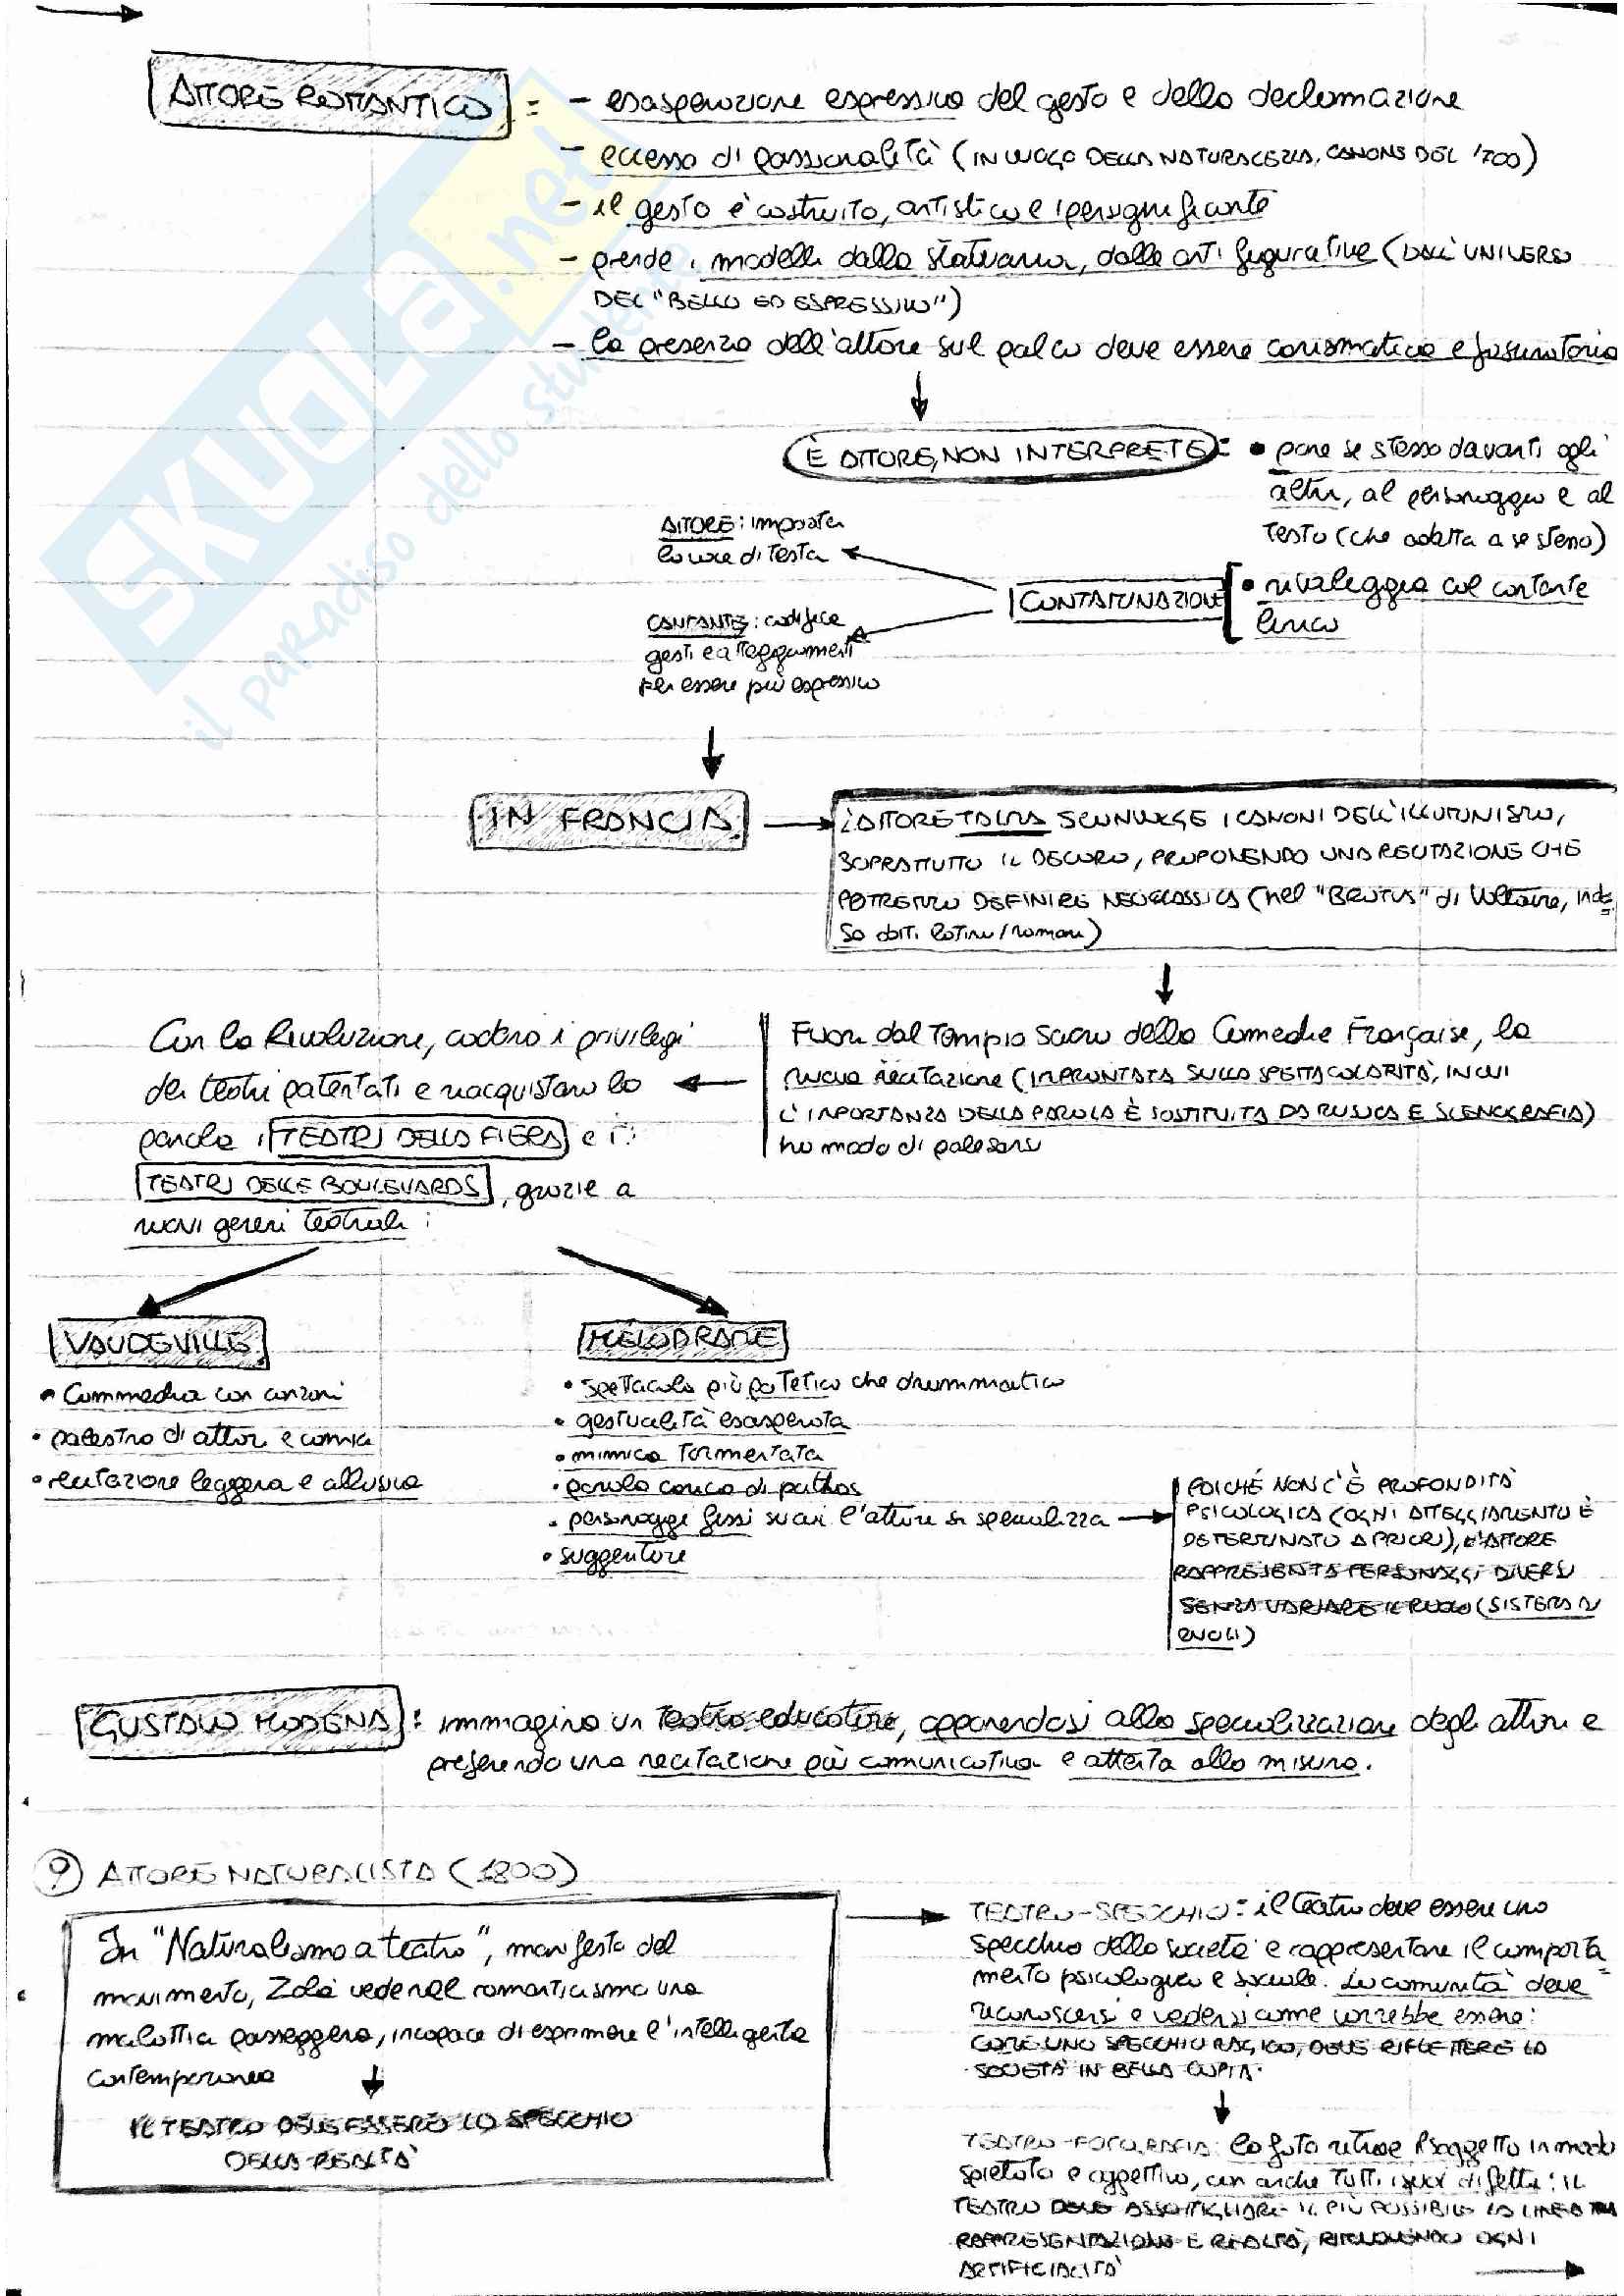 ATTORE ROMANTICO = - esasperazione espressiva del gesto e della declamazione
- eccesso di passionalità (IN LUOGO DELLA NATURALEZZA, CANONE DEL '700)
- il gesto è costruito, artistico e ipersignificante
- prende i modelli dalla statuaria, dalle arti figurative (DALL'UNIVERSO
DEL "BELLO ED ESPRESSIVO")
- la presenza dell'attore sul palco deve essere carismatica e fascinatoria
È ATTORE, NON INTERPRETE = • pone se stesso davanti agli
altri, al personaggio e al
testo (che adatta a se stesso)
ATTORE: imposta
la voce di testa
CONTAMINAZIONE • rivaleggia col cantante
lirico
CANTANTE: codifica
gesti e atteggiamenti
per essere più espressivo
IN FRANCIA
L'ATTORE TALMA SCONVOLGE I CANONI DELL'ILLUMINISMO,
SOPRATTUTTO IL DECORO, PROPONENDO UNA RECITAZIONE CHE
POTREMMO DEFINIRE NEOCLASSICA (nel "BRUTUS" di Voltaire, indos=
sa abiti latini/romani)
Fuori dal Tempio Sacro della Comedie Française, la
nuova recitazione (IMPRONTATA SULLA SPETTACOLARITÀ, IN CUI
L'IMPORTANZA DELLA PAROLA È SOSTITUITA DA MUSICA E SCENOGRAFIA)
ha modo di palesarsi
Con la Rivoluzione, cadono i privilegi
dei teatri patentati e riacquistano la
parola i TEATRI DELLA FIERA e i
TEATRI DELLE BOULEVARDS, grazie a
nuovi generi teatrali:
VAUDEVILLE
• Commedia con canzoni
• palestra di attori e comici
• recitazione leggera e allusiva
MELODRAME
• spettacolo più patetico che drammatico
• gestualità esasperata
• mimica tormentata
• parola carica di pathos
• personaggi fissi su cui l'attore si specializza
• suggeritore
POICHÉ NON C'È PROFONDITÀ
PSICOLOGICA (OGNI ATTEGGIAMENTO È
DETERMINATO A PRIORI), L'ATTORE
RAPPRESENTA PERSONAGGI DIVERSI
SENZA VARIARE IL RUOLO (SISTEMA DI
RUOLI)
GUSTAVO MODENA: immagina un teatro educatore, opponendosi alla specializzazione degli attori e
preferendo una recitazione più comunicativa e attenta alla misura.
9 ATTORE NATURALISTA (1800)
In "Naturalismo a teatro", manifesto del
movimento, Zola vede nel romanticismo una
malattia passeggera, incapace di esprimere l'intelligenza
contemporanea
IL TEATRO DEVE ESSERE LO SPECCHIO
DELLA REALTÀ
TEATRO-SPECCHIO: il teatro deve essere uno
specchio della società e rappresentare il comporta=
mento psicologico e sociale. La comunità deve
riconoscersi e vedersi come vorrebbe essere:
COME UNO SPECCHIO MAGICO, DEVE RIFLETTERE LA
SOCIETÀ IN BELLA COPIA.
TEATRO-FOTOGRAFIA: la foto ritrae il soggetto in modo
spietato e oggettivo, con anche tutti i suoi difetti: IL
TEATRO DEVE ASSOTTIGLIARE IL PIÙ POSSIBILE LA LINEA TRA
RAPPRESENTAZIONE E REALTÀ, RIMUOVENDO OGNI
ARTIFICIALITÀ
SKUOLA.net
il paradiso dello studente